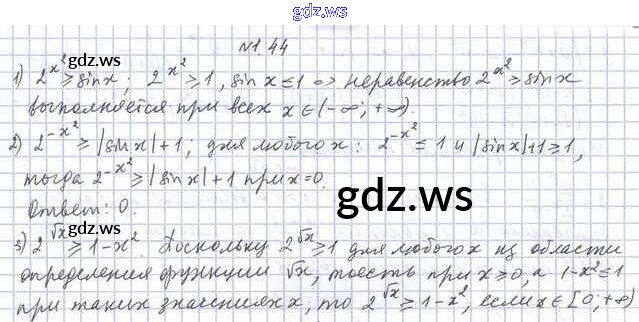 gdz.ws
№1.44
gdz.ws
1) 2^{x^2} ≥ sin x; 2^{x^2} ≥ 1, sin x ≤ 1 ⇒ неравенство 2^{x^2} ≥ sin x
выполняется при всех x ∈ (-∞; +∞)
2) 2^{-x^2} ≥ |sin x| + 1; для любого x: 2^{-x^2} ≤ 1 и |sin x| + 1 ≥ 1,
тогда 2^{-x^2} ≥ |sin x| + 1 при x = 0.
gdz.ws
Ответ: 0.
gdz.ws
3) 2^{√x} ≥ 1 - x^2. Поскольку 2^{√x} ≥ 1 для любого x из области
определения функции √x, то есть при x ≥ 0, а 1 - x^2 ≤ 1
при таких значениях x, то 2^{√x} ≥ 1 - x^2, если x ∈ [0; +∞)
gdz.ws